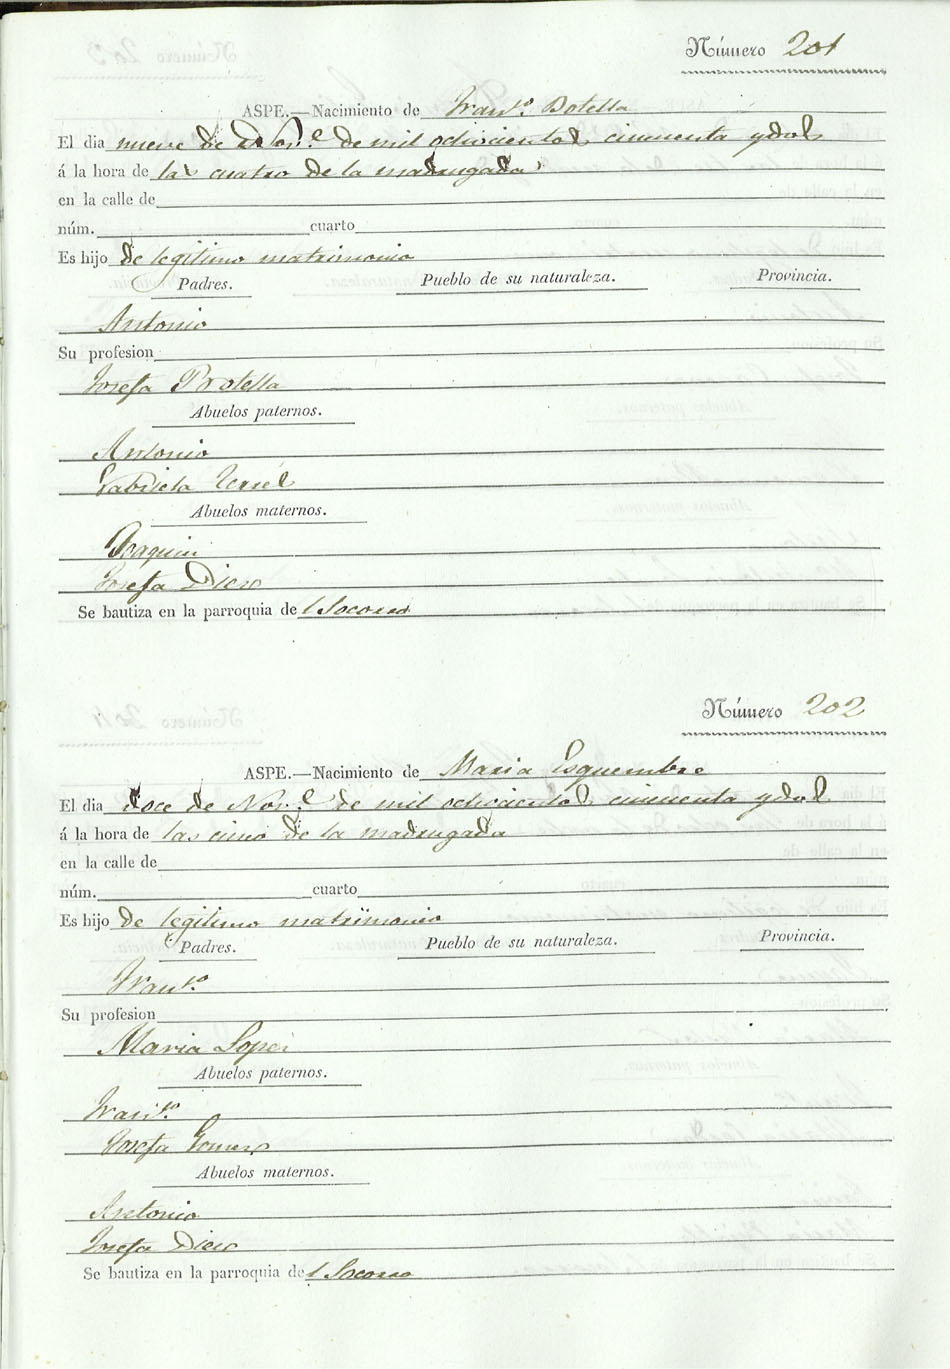 Número 201
ASPE.—Nacimiento de Fran.co Botella
El dia nueve de Nov.e de mil ochocientos cincuenta y dos
á la hora de las cuatro de la madrugada
en la calle de
núm. cuarto
Es hijo de legitimo matrimonio
Padres. Pueblo de su naturaleza. Provincia.
Antonio
Su profesion
Josefa Botella
Abuelos paternos.
Antonio
Gabriela
Abuelos maternos.
Joaquin
Josefa Diez
Se bautiza en la parroquia de l Socorro
Número 202
ASPE.—Nacimiento de Maria Esquembre
El dia doce de Nov.e de mil ochocientos cincuenta y dos
á la hora de las cinco de la madrugada
en la calle de
núm. cuarto
Es hijo de legitimo matrimonio
Padres. Pueblo de su naturaleza. Provincia.
Fran.co
Su profesion
Maria Lopez
Abuelos paternos.
Fran.co
Josefa Gomez
Abuelos maternos.
Antonio
Josefa Diez
Se bautiza en la parroquia de l Socorro